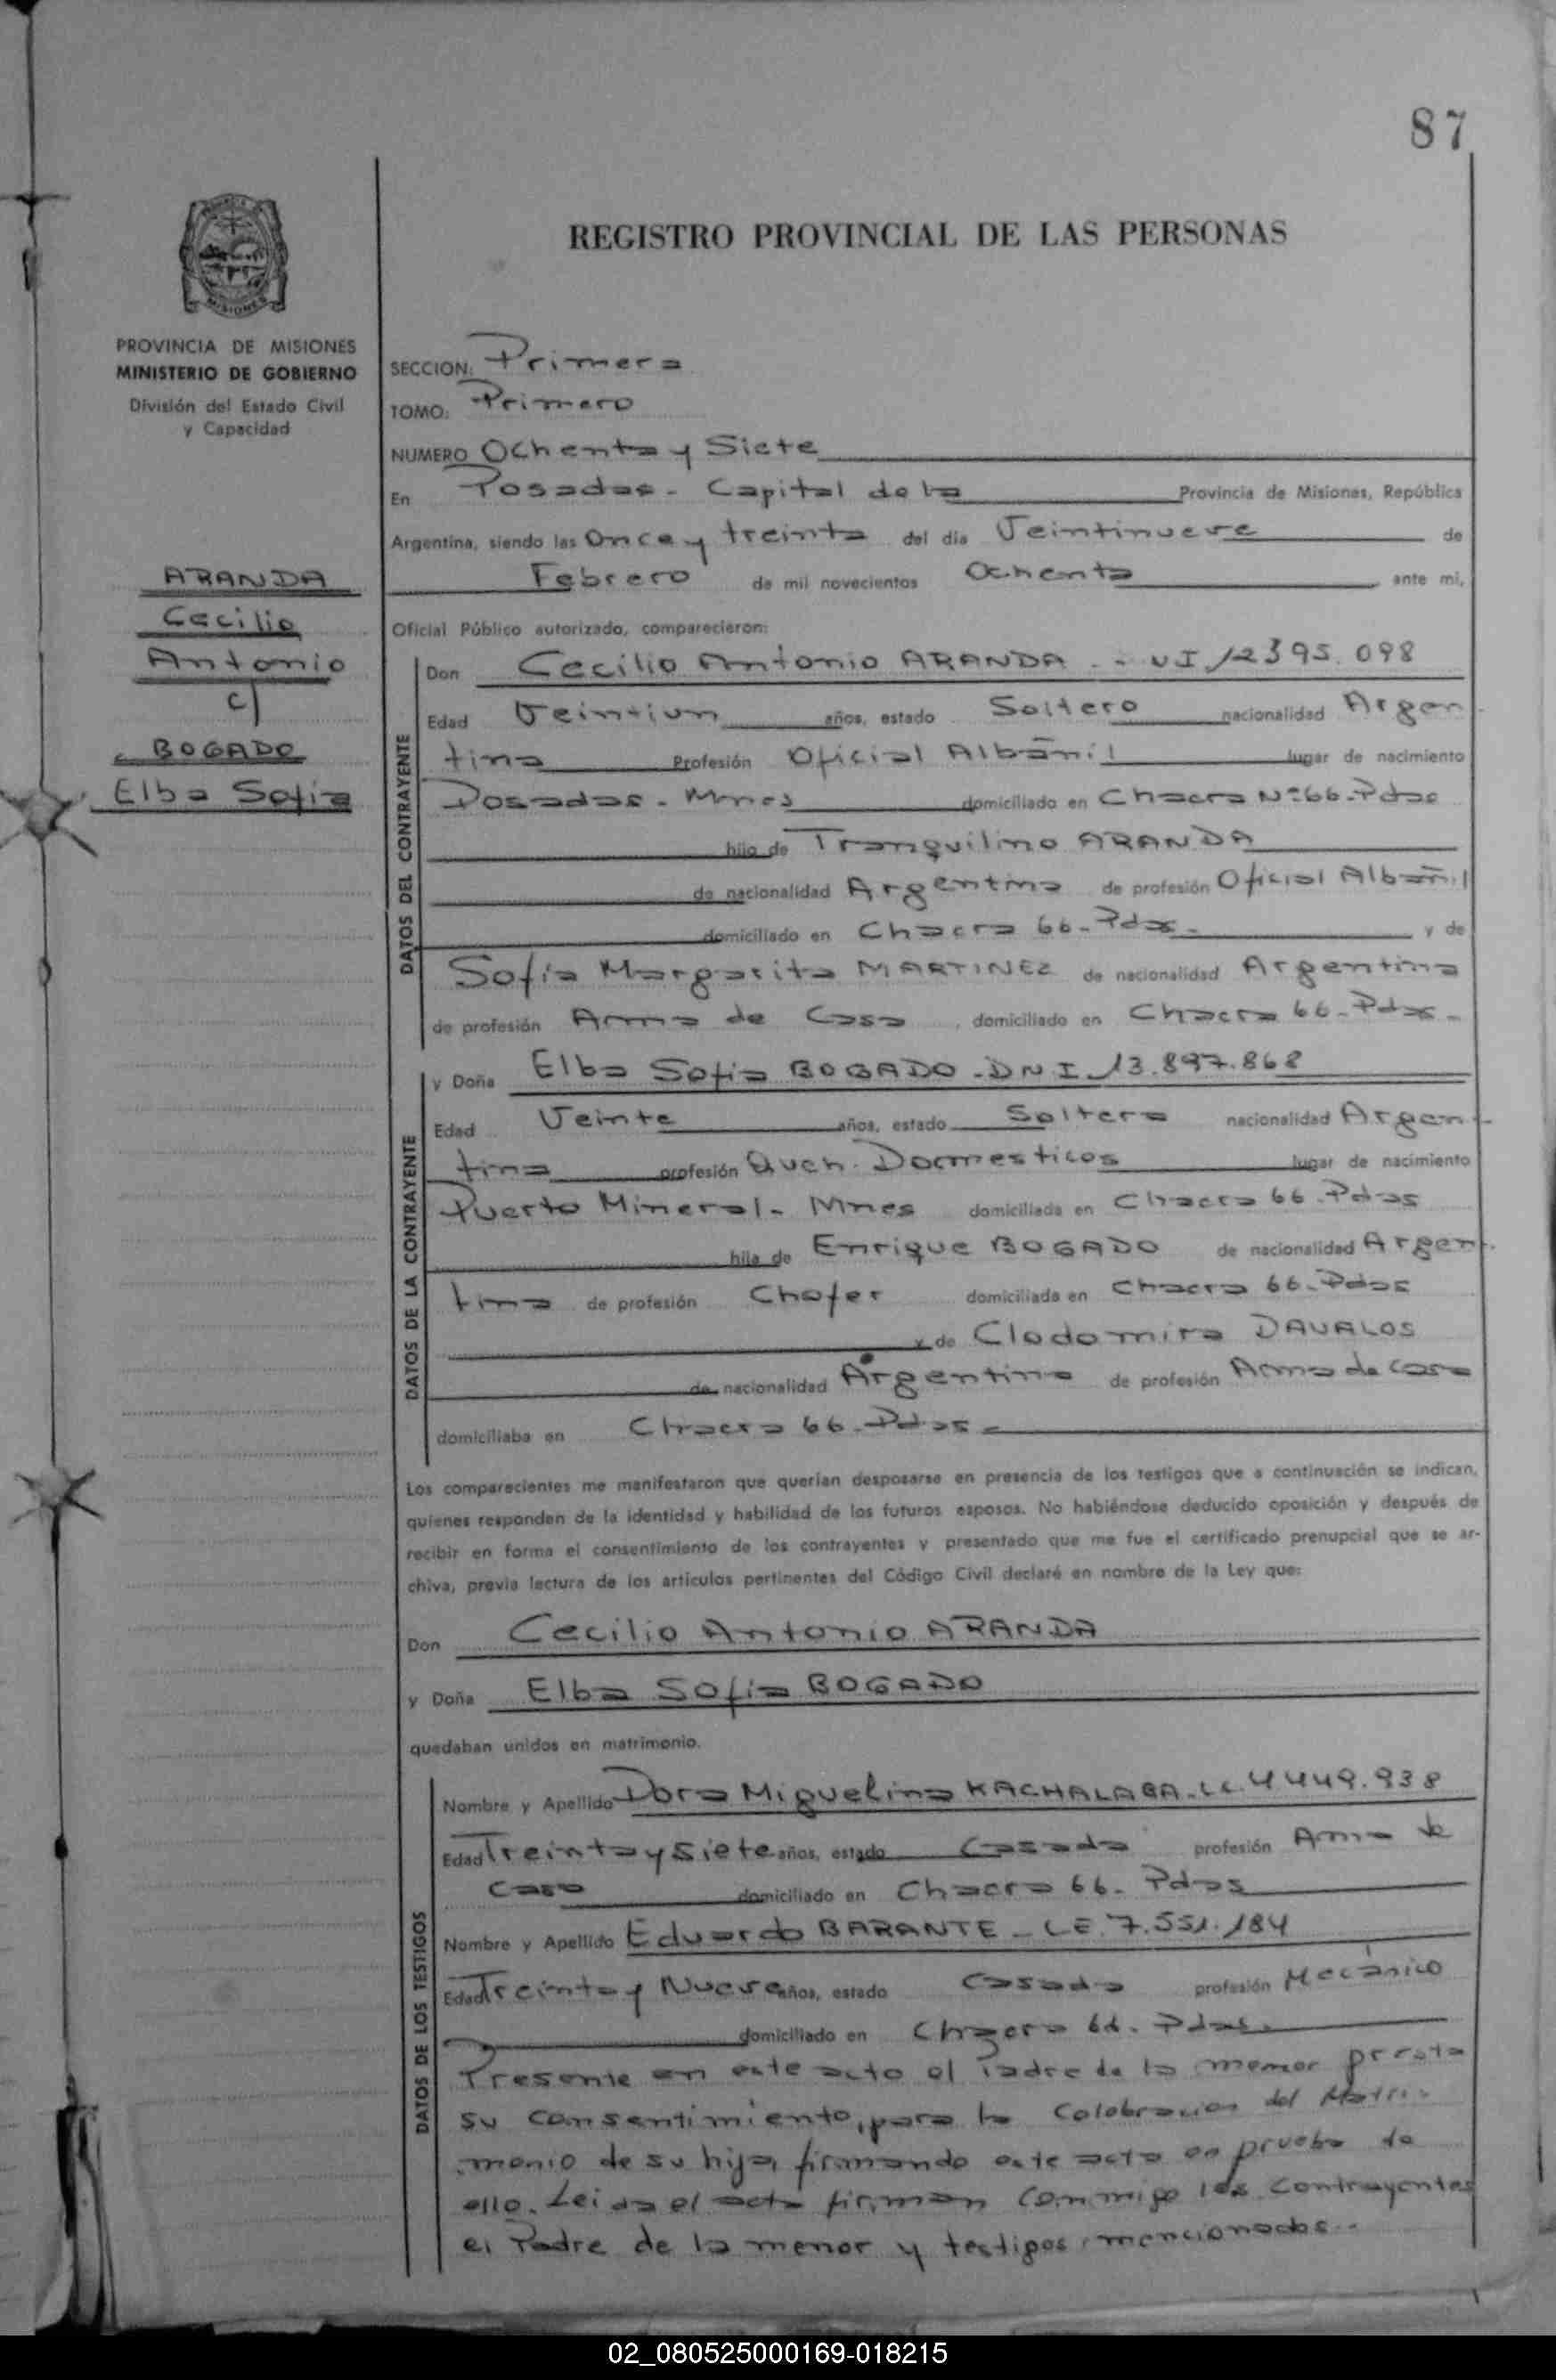 87
REGISTRO PROVINCIAL DE LAS PERSONAS
MISIONES
PROVINCIA DE MISIONES
MINISTERIO DE GOBIERNO
División del Estado Civil
y Capacidad
ARANDA
Cecilio
Antonio
c/
BOGADO
Elba Sofia
SECCION: Primera
TOMO: Primero
NUMERO Ochenta y Siete
En Posadas - Capital de la Provincia de Misiones, República
Argentina, siendo las Once y treinta del día Veintinueve de
Febrero de mil novecientos Ochenta ante mi,
Oficial Público autorizado, comparecieron:
DATOS DEL CONTRAYENTE
Don Cecilio Antonio ARANDA - 12395.098
Edad Veintiun años, estado Soltero nacionalidad Argen
tina Profesión Oficial Albañil lugar de nacimiento
Posadas - Mnes domiciliado en Chacra Nº 66 - Pdas
hijo de Tranquilino ARANDA
de nacionalidad Argentina de profesión Oficial Albañil
domiciliado en Chacra 66 - Pdas - y de
Sofia Margarita MARTINEZ de nacionalidad Argentina
de profesión Ama de Casa, domiciliado en Chacra 66 - Pdas -
DATOS DE LA CONTRAYENTE
y Doña Elba Sofia BOGADO - DNI 13.897.868
Edad Veinte años, estado Soltera nacionalidad Argen-
tina profesión Queh. Domesticos lugar de nacimiento
Puerto Mineral - Mnes domiciliada en Chacra 66 - Pdas
hija de Enrique BOGADO de nacionalidad Argen-
tina de profesión Chofer domiciliada en Chacra 66 - Pdas
y de Clodomira DAVALOS
de nacionalidad Argentina de profesión Ama de casa
domiciliaba en Chacra 66 - Pdas -
Los comparecientes me manifestaron que querían desposarse en presencia de los testigos que a continuación se indican,
quienes responden de la identidad y habilidad de los futuros esposos. No habiéndose deducido oposición y después de
recibir en forma el consentimiento de los contrayentes y presentado que me fue el certificado prenupcial que se ar-
chiva, previa lectura de los artículos pertinentes del Código Civil declaré en nombre de la Ley que:
Don Cecilio Antonio ARANDA
y Doña Elba Sofia BOGADO
quedaban unidos en matrimonio.
DATOS DE LOS TESTIGOS
Nombre y Apellido Dora Miguelina KACHALABA - LC. 4449.938
Edad Treinta y Siete años, estado Casada profesión Ama de
Casa domiciliado en Chacra 66 - Pdas
Nombre y Apellido Eduardo BARANTE - LE. 7.551.184
Edad Treinta y Nueve años, estado Casado profesión Mecánico
domiciliado en Chacra 66 - Pdas.
Presente en este acto el Padre de la menor presta
su consentimiento, para la Celebracion del Matri-
monio de su hija, firmando este acta en prueba de
ello. Leida el acta firman conmigo los contrayentes
el Padre de la menor y testigos mencionados.-
02_080525000169-018215